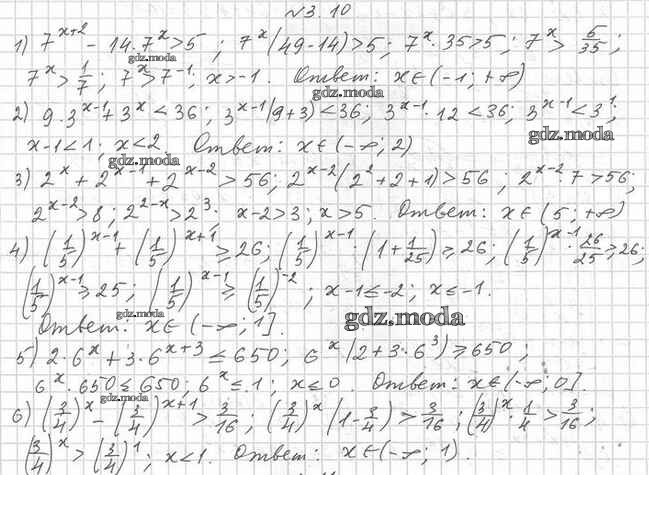 N3.10
1) 7^{x+2} - 14·7^x > 5 ; 7^x (49-14) > 5 ; 7^x · 35 > 5 ; 7^x > 5/35 ;
7^x > 1/7 ; 7^x > 7^{-1} ; x > -1 . Ответ: x ∈ (-1; +∞)
gdz.moda
gdz.moda
2) 9·3^{x-1} + 3^x < 36 ; 3^{x-1} (9+3) < 36 ; 3^{x-1} · 12 < 36 ; 3^{x-1} < 3^1 ;
gdz.moda
x-1 < 1 ; x < 2 . Ответ: x ∈ (-∞; 2)
gdz.moda
3) 2^x + 2^{x-1} + 2^{x-2} > 56 ; 2^{x-2} (2^2 + 2 + 1) > 56 ; 2^{x-2} · 7 > 56 ;
2^{x-2} > 8 ; 2^{2-x} > 2^3 ; x-2 > 3 ; x > 5 . Ответ: x ∈ (5; +∞)
4) (1/5)^{x-1} + (1/5)^{x+1} ≥ 26 ; (1/5)^{x-1} · (1 + 1/25) ≥ 26 ; (1/5)^{x-1} · 26/25 ≥ 26 ;
(1/5)^{x-1} ≥ 25 ; (1/5)^{x-1} ≥ (1/5)^{-2} ; x-1 ≤ -2 ; x ≤ -1 .
gdz.moda
gdz.moda
Ответ: x ∈ (-∞; 1] .
5) 2·6^x + 3·6^{x+3} ≤ 650 ; 6^x (2 + 3·6^3) ≥ 650 ;
6^x · 650 ≤ 650 ; 6^x ≤ 1 ; x ≤ 0 . Ответ: x ∈ (-∞; 0] .
gdz.moda
6) (3/4)^x - (3/4)^{x+1} > 3/16 ; (3/4)^x (1 - 3/4) > 3/16 ; (3/4)^x · 1/4 > 3/16 ;
(3/4)^x > (3/4)^1 ; x < 1 . Ответ: x ∈ (-∞; 1) .